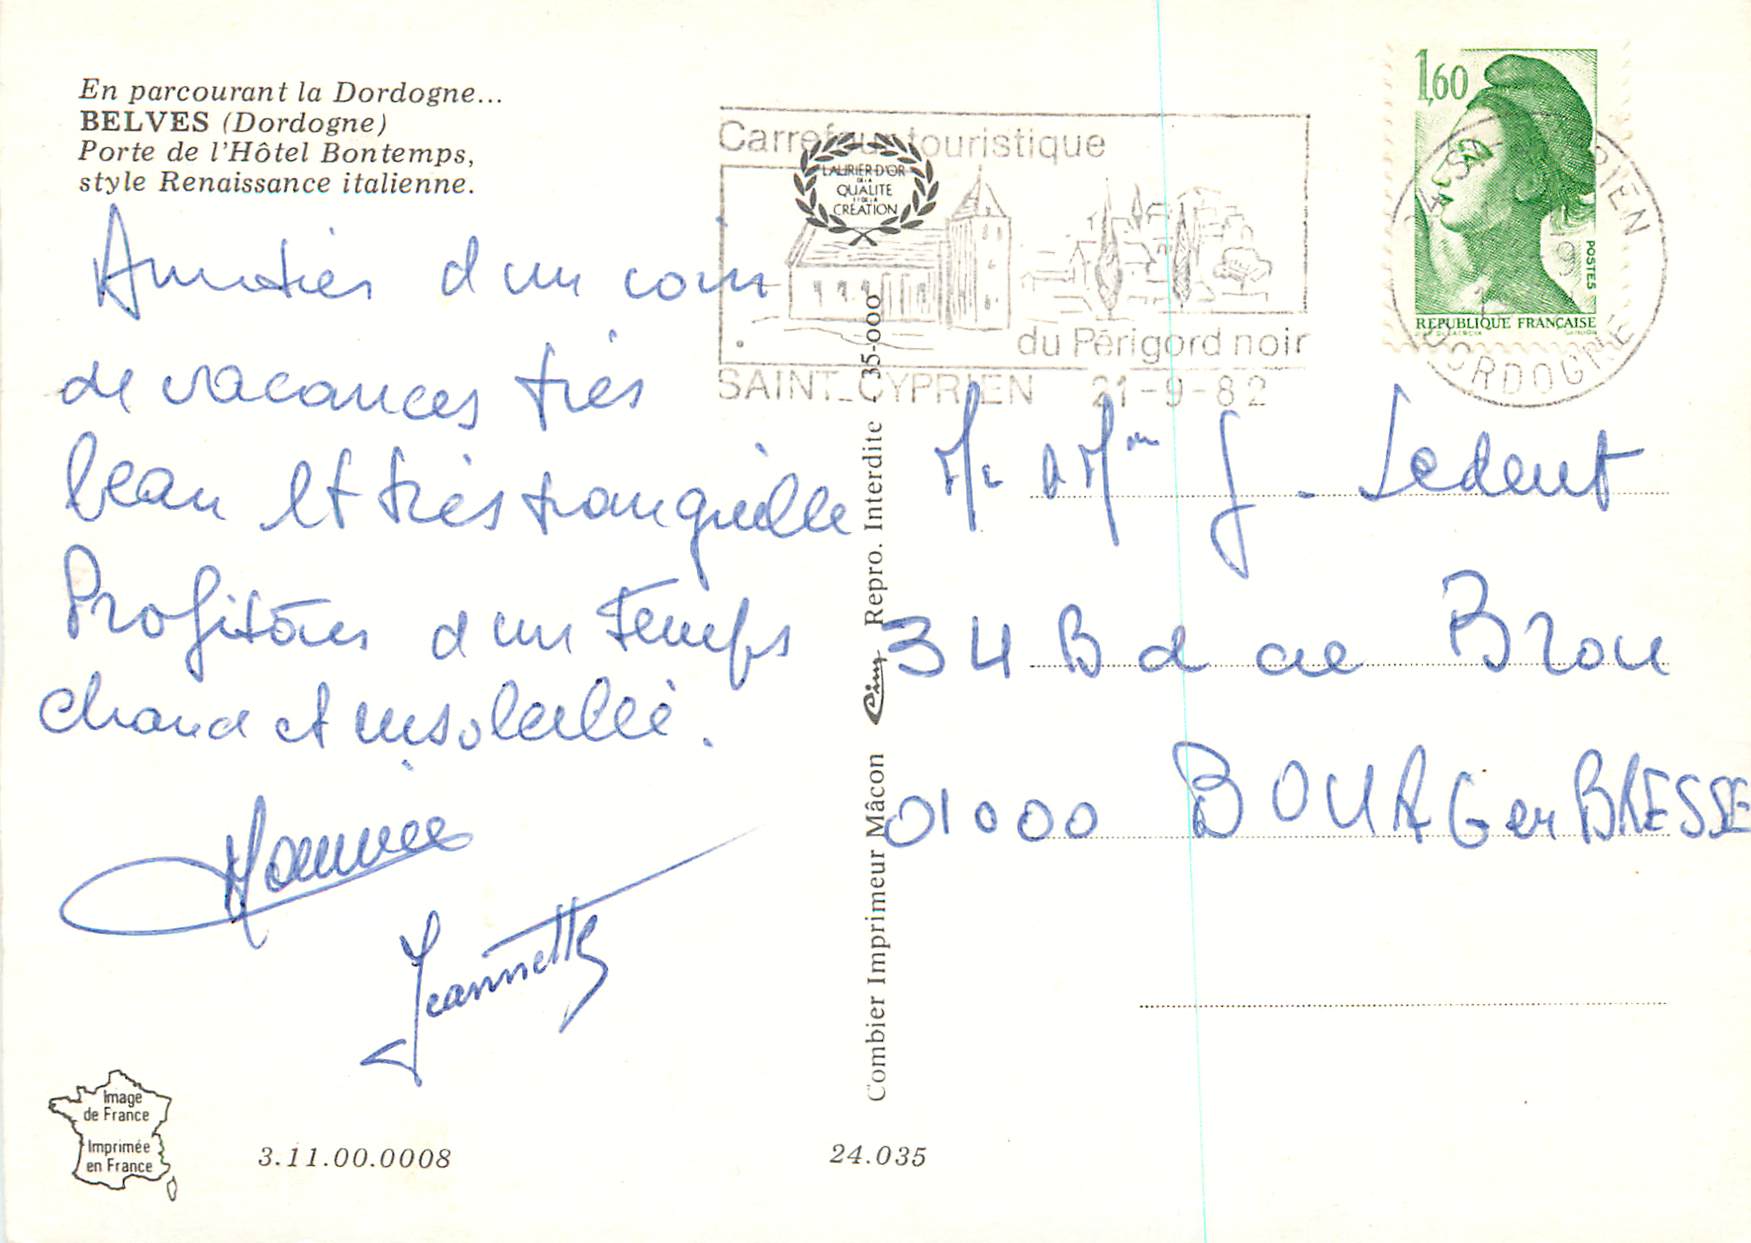 En parcourant la Dordogne...
BELVES (Dordogne)
Porte de l'Hôtel Bontemps,
style Renaissance italienne.
Amitiés d'un coin
de vacances très
beau et très tranquille
Profitons d'un temps
chaud et ensoleillé.
Jeannette
Image
de France
Imprimée
en France
3.11.00.0008
24.035
Combier Imprimeur Mâcon Cim Repro. Interdite 35-000
Carrefour touristique
LAURIER D'OR
DE LA
QUALITÉ
ET DE LA
CRÉATION
du Périgord noir
SAINT-CYPRIEN 21-9-82
1,60
POSTES
REPUBLIQUE FRANÇAISE
24 ST CYPRIEN
DORDOGNE
Mr & Mme J. Ledent
34 Bd de Brou
01000 BOURG en BRESSE